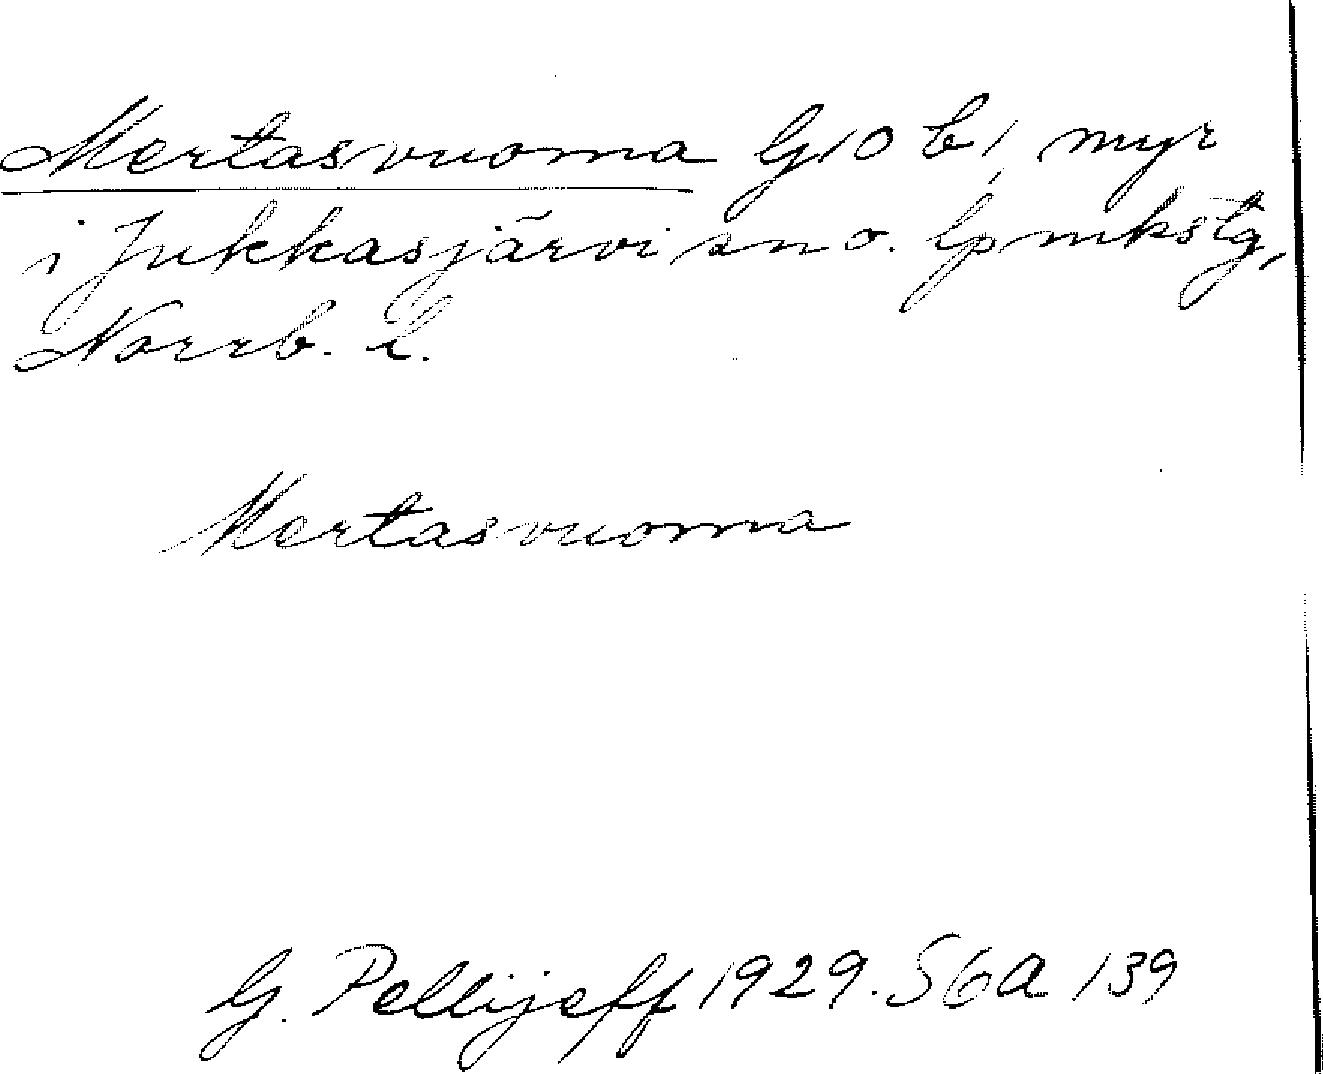 Mertasvuoma G10 b, myr
i Jukkasjärvi sn o. lpmkstg,
Norrb. l.
Mertasvuoma
G. Pellijeff 1929. S6a 139